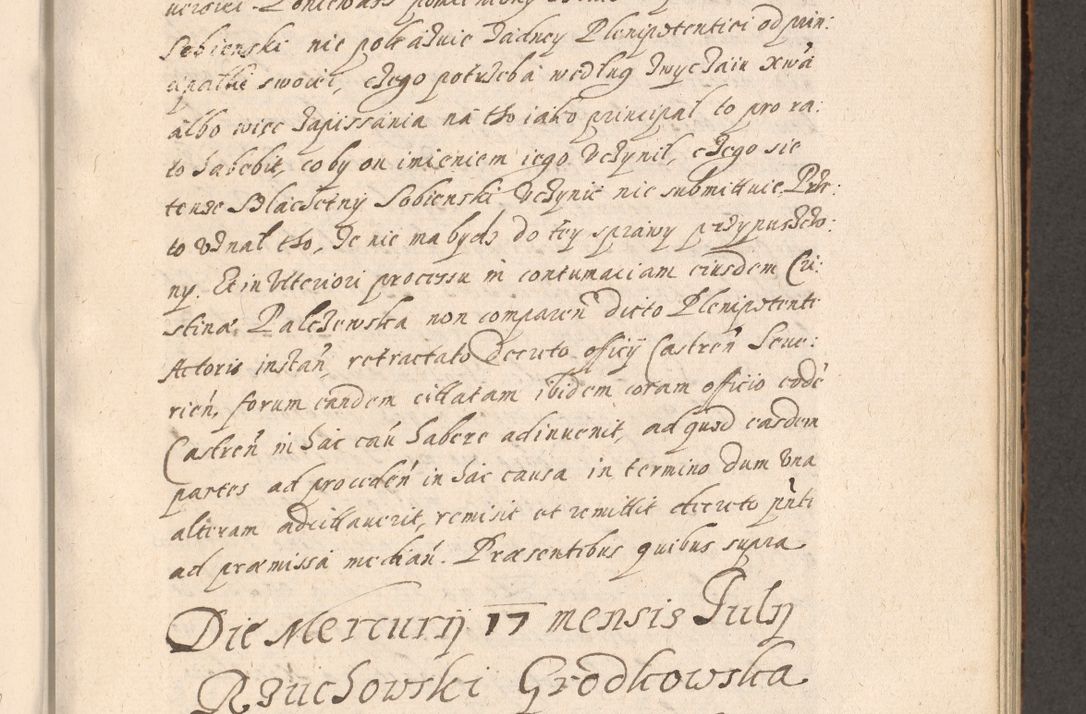 Sobienski nie pokazuie żadney Plenipotentiei od prin:
cipałki swoiei, czego potrzeba według zwyczaiu
albo więc zapissania na tho iako principal to pro ra:
to habebit, coby on imieniem iego uczynił, czego się
tenże Slachetny Sobienski uczynić nie submittuie. Prze:
to uznał tho, że nie ma bydz do tey sprawy przypuszczo:
ny. Et in ulteriori processu in contumaciam eiusdem Cri:
stinæ Palczewska non comparen dicto Plenipotente
Actoris instan, retractato Decreto officij Castren Seve:
rien, forum eandem cittatam ibidem coram officio eode
Castren in hac cau habere adinuenit, ad quod easdem
partes ad proceden in hac causa in termino dum una
alteram adcittauerit, remisit et remittit decreto pnti
ad præmissa median. Præsentibus quibus supra
Die Mercurij 17 mensis July
Rzuchowski Grodkowska